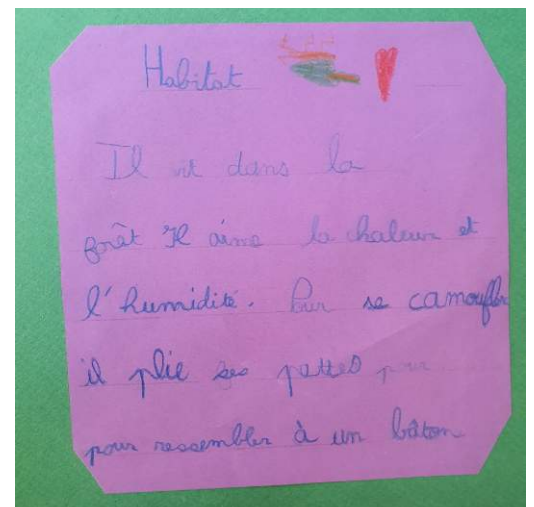 Habitat
Il vit dans la
forêt Il aime la chaleur et
l'humidité. Pour se camoufler
il plie ses pattes pour
pour ressembler à un bâton